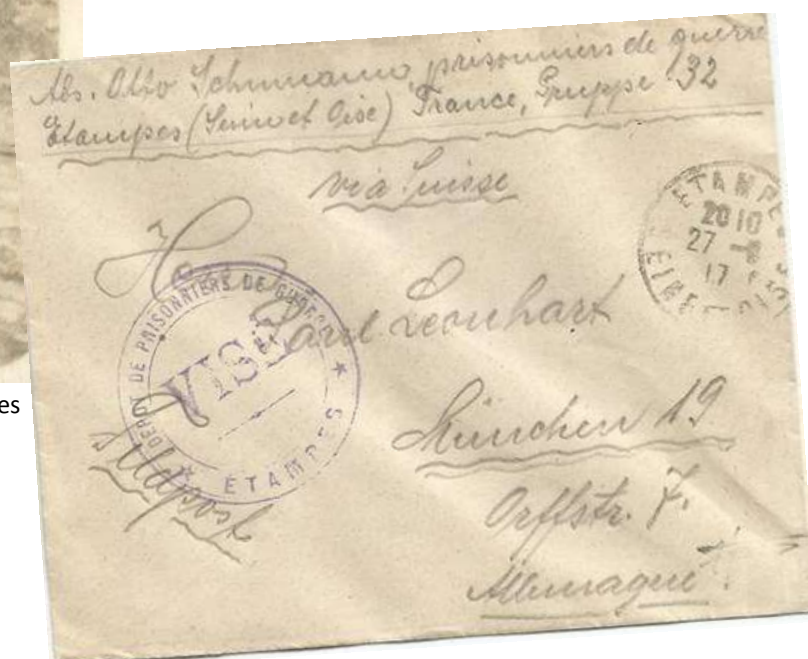 Abs. Otto Schumann, prisonniers de guerre
Etampes (Seine et Oise) France, Gruppe 32
via Suisse
ETAMPES
20 10
27 -8
17
DEPOT DE PRISONNIERS DE GUERRE
VISÉ
ETAMPES
Leonhart
München 19
Feldpost
Orffstr. 7.
Allemagne
es